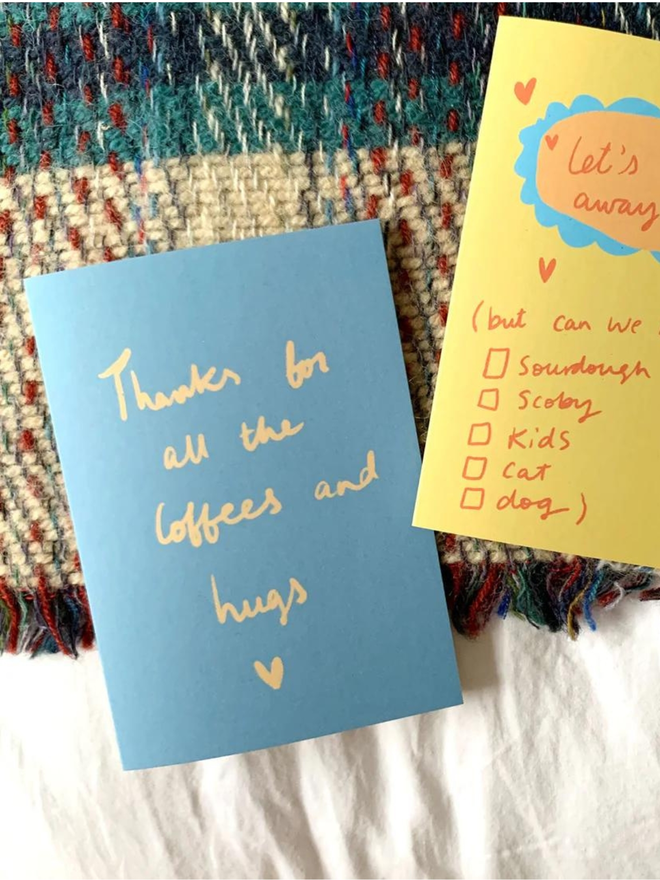 Thanks for
all the
Coffees and
hugs
Let's
away
(but can we
Sourdough
Scoby
Kids
Cat
dog)